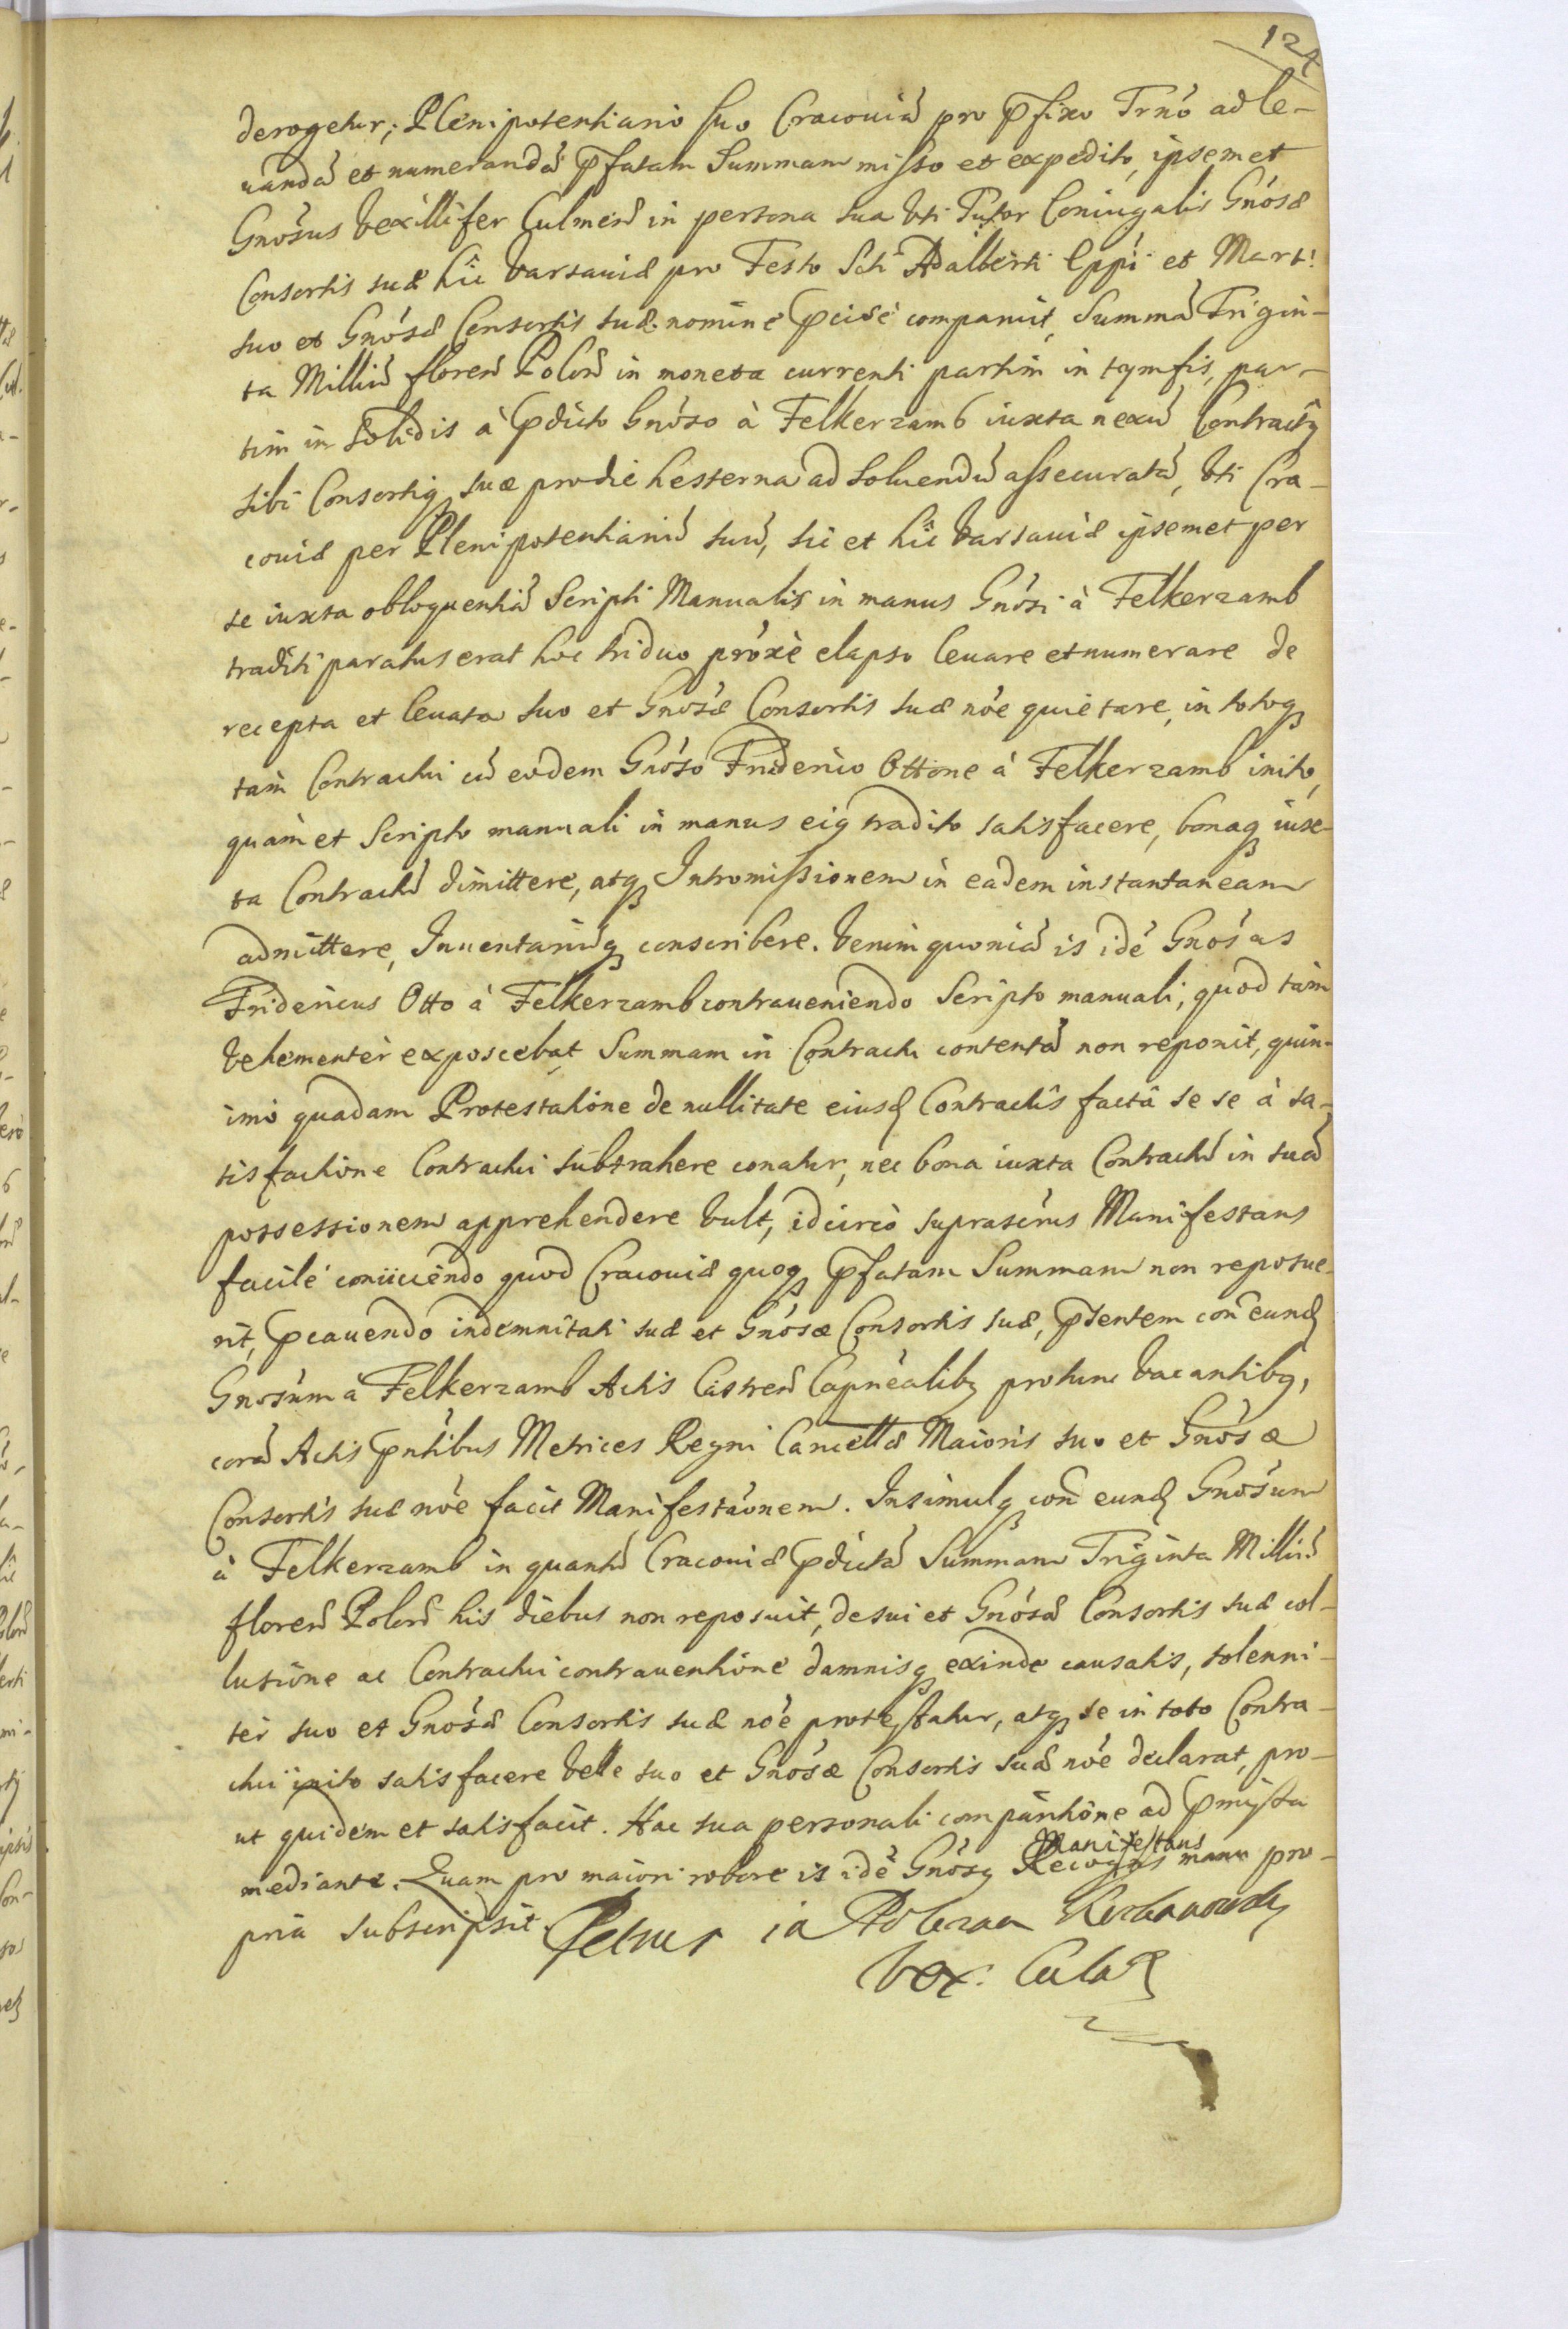 124
derogetur; Plenipotentiario suo Cracouiã pro pfixo Trńo ad le-
uandã et numerandã pfatam Summam misso et expedito, ipsemet
Gnosus Vexillifer Culmeñ in persona sua uti Tutor Coniugalis Gnósæ
Consortis suæ hîc Varsauiæ pro Festo Scti Adalberti Eppi et Mart:
suo et Gnósæ Consortis suæ nomine pcisè comparuit, Summã Trigin-
ta Milliũ floreñ Poloñ in moneta currenti partim in tymfis, par-
tim in Solidis à pdicto Gnóso à Felkerzamb iuxta nexũ Contractus
sibi Consortiq suæ pro die hesterna ad soluendũ assecuratã, uti Cra-
couiæ per Plenipotentiariũ suũ, sic et hîc Varsauiæ ipsemet per
se iuxta obloquentiã Scripti Manualis in manus Gnósi à Felkerzamb
traditi paratus erat hoc triduo próxè elapso leuare et numerare de
recepta et leuata suo et Gnósæ Consortis suæ nóe quietare, in totoq
tàm Contractui cũ eodem Gnóso Friderico Ottone à Felkerzamb inito,
quàm et Scripto manuali in manus eiq tradito satisfacere, bonaq iux-
ta Contractũ dimittere, atq Intromissionem in eadem instantaneam
admittere, Inuentariũq conscribere. Verùm quoniã is idẽ Gnósus
Fridericus Otto à Felkerzamb contraueniendo Scripto manuali, quod tàm
vehementèr exposcebat, Summam in Contractu contentã non reponit, quin-
imò quadam Protestatione de nullitate eiusd Contractûs factâ se se à sa-
tisfactione Contractui subtrahere conatur, nec bona iuxta Contractũ in suã
possessionem apprehendere vult, idcircò suprascrus Manifestans
facilè coniiciendo quod Cracouiæ quoq pfatam Summam non reposue-
rit, pcauendo indemnitati suæ et Gnósæ Consortis suæ, psentem coñ eund
Gnosum à Felkerzamb Actis Castreñ Capnealibq protunc vacantibq,
corã Actis pntibus Metrices Regni Cancellæ Maioris suo et Gnósæ
Consortis suæ nóe facit Manifestaónem. Insimulq coñ eund Gnósum
à Felkerzamb in quantũ Cracouiæ pdictã Summam Triginta Milliũ
floreñ Poloñ his diebus non reposuit, de sui et Gnósæ Consortis suæ col-
lusione ac Contractui contrauentione damnisq exinde causatis, solenni-
tèr suo et Gnósæ Consortis suæ nóe protestatur, atq se in toto Contra-
ctui inito satisfacere velle suo et Gnósæ Consortis suæ nóe declarat, pro-
ut quidem et satisfacit. Hac sua personali comparitione ad pmissa
mediante. Quam pro maiori robore is idẽ Gnósq Recogns Manifestans manu pro-
pria subscripsit.
Petrus
Vex: